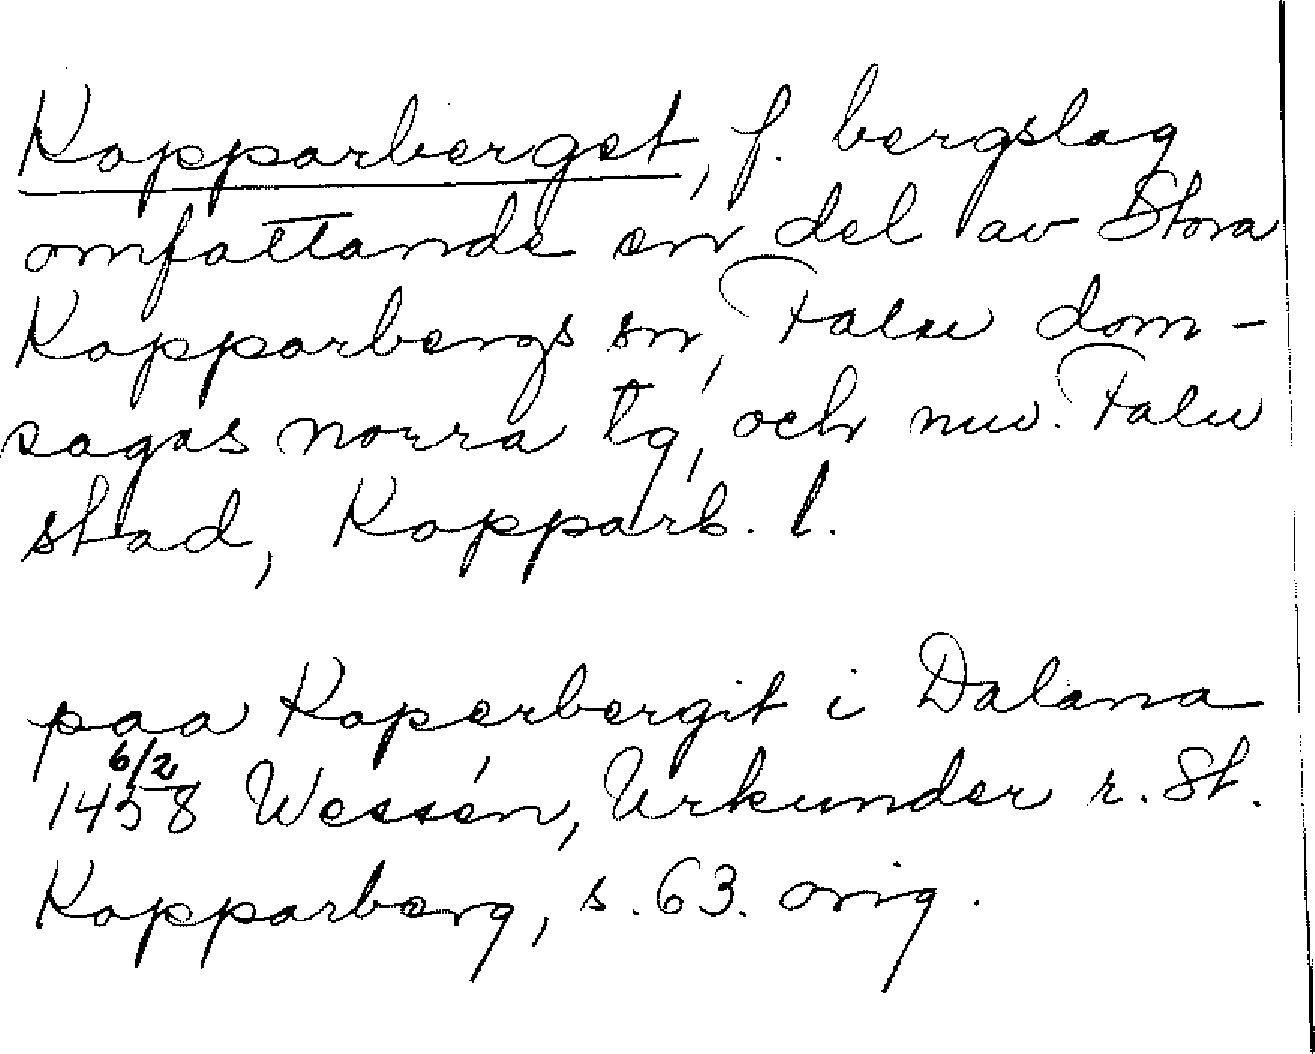 Kopparberget, f. bergslag
omfattande en del av Stora
Kopparbergs sn, Falu dom-
sagas norra tg, och nuv. Falu
stad, Kopparb. l.
paa Koperbergit i Dalana
6/2
1458 Wessén, Urkunder r. St.
Kopparberg, s. 63. orig.